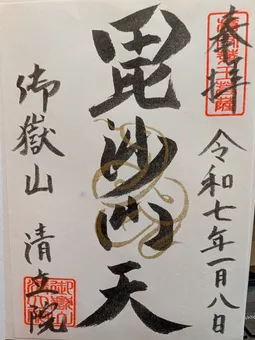 奉拝
令和七年一月八日
毘沙門天
御嶽山 清立院